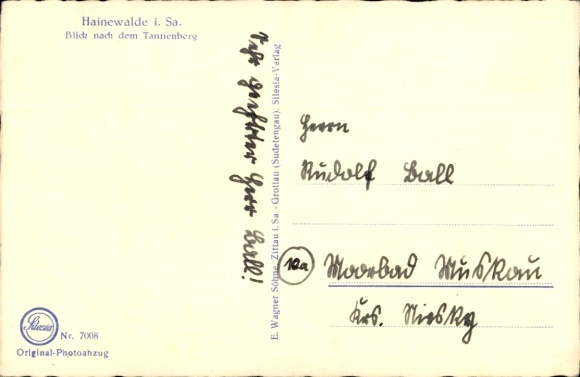 Hainewalde i. Sa.
Blick nach dem Tannenberg
Sehr geehrter Herr Ball!
E. Wagner Söhne, Zittau i. Sa. - Grottau (Sudetengau). Silesia-Verlag
Herrn
Rudolf Ball
10a Moorbad Muskau
Krs. Niesky
Silesia
Nr. 7008
Original-Photoabzug